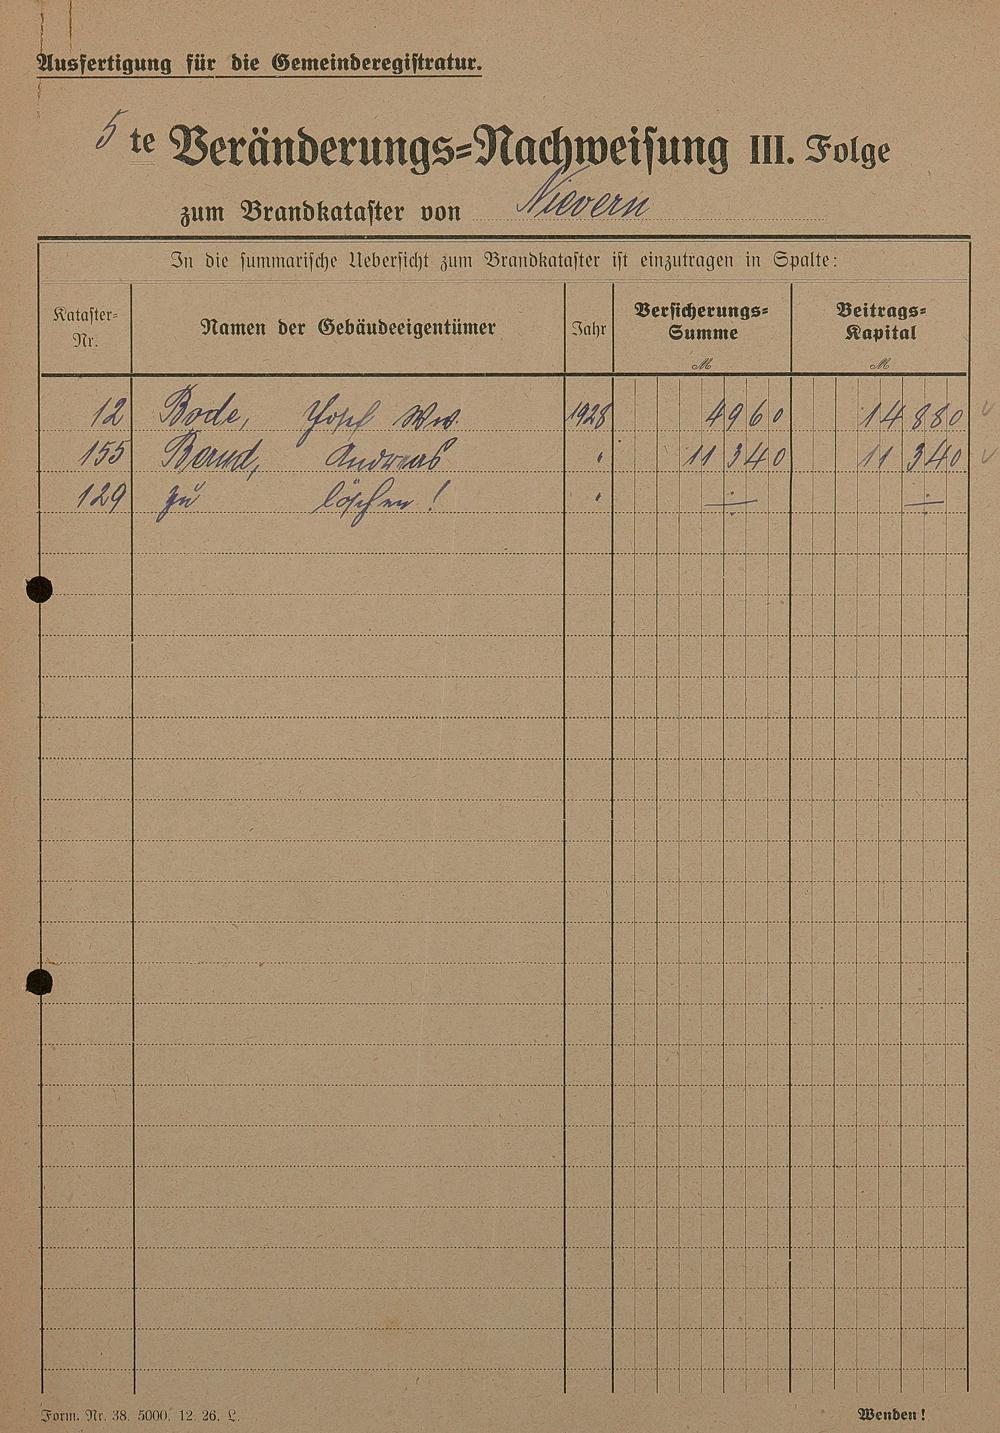 Ausfertigung für die Gemeinderegistratur.
5 te Veränderungs=Nachweisung III. Folge
zum Brandkataster von Nievern
In die summarische Uebersicht zum Brandkataster ist einzutragen in Spalte:
Kataster=Nr. Namen der Gebäudeeigentümer Jahr Versicherungs=Summe M Beitrags=Kapital M
12 Bode, Josef Ww. 1928 4960 14880
155 Andreas " 11340 11340
129 zu löschen! " ÷ ÷
Form. Nr. 38. 5000. 12. 26. L.
Wenden!